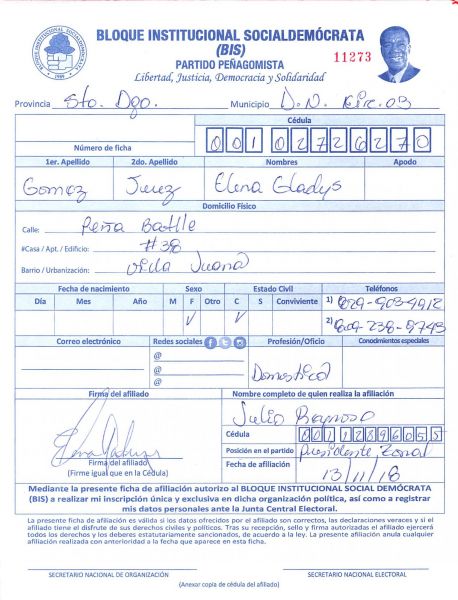 BLOQUE INSTITUCIONAL SOCIALDEMÓCRATA
(BIS)
PARTIDO PEÑAGOMISTA
11273
Libertad, Justicia, Democracia y Solidaridad
Provincia Sto. Dgo. Municipio D.N. Circ. 03
Cédula
Número de ficha 00102726270
1er. Apellido 2do. Apellido Nombres Apodo
Gomez Jerez Elena Gladys
Domicilio Físico
Calle: Peña Batlle
#Casa / Apt. / Edificio: #38
Barrio / Urbanización: Villa Juana
Fecha de nacimiento Sexo Estado Civil Teléfonos
Día Mes Año M F Otro C S Conviviente 1) 829-903-4912
2) 809-238-8743
Correo electrónico Redes sociales Profesión/Oficio Conocimientos especiales
@
@ Domestica
@
Firma del afiliado Nombre completo de quien realiza la afiliación
Julio Reynoso
Cédula 00112896055
Posición en el partido Presidente Zonal
Firma del afiliado
(Firme igual que en la Cédula)
Fecha de afiliación 13/11/18
Mediante la presente ficha de afiliación autorizo al BLOQUE INSTITUCIONAL SOCIAL DEMÓCRATA
(BIS) a realizar mi inscripción única y exclusiva en dicha organización política, así como a registrar
mis datos personales ante la Junta Central Electoral.
La presente ficha de afiliación es válida si los datos ofrecidos por el afiliado son correctos, las declaraciones veraces y si el
afiliado tiene el disfrute de sus derechos civiles y políticos. Tras su recepción, sello y firma autorizadas el afiliado ejercerá
todos los derechos y los deberes estatutariamente sancionados, de acuerdo a la ley. La presente afiliación anula cualquier
afiliación realizada con anterioridad a la fecha que aparece en esta ficha.
SECRETARIO NACIONAL DE ORGANIZACIÓN SECRETARIO NACIONAL ELECTORAL
(Anexar copia de cédula del afiliado)